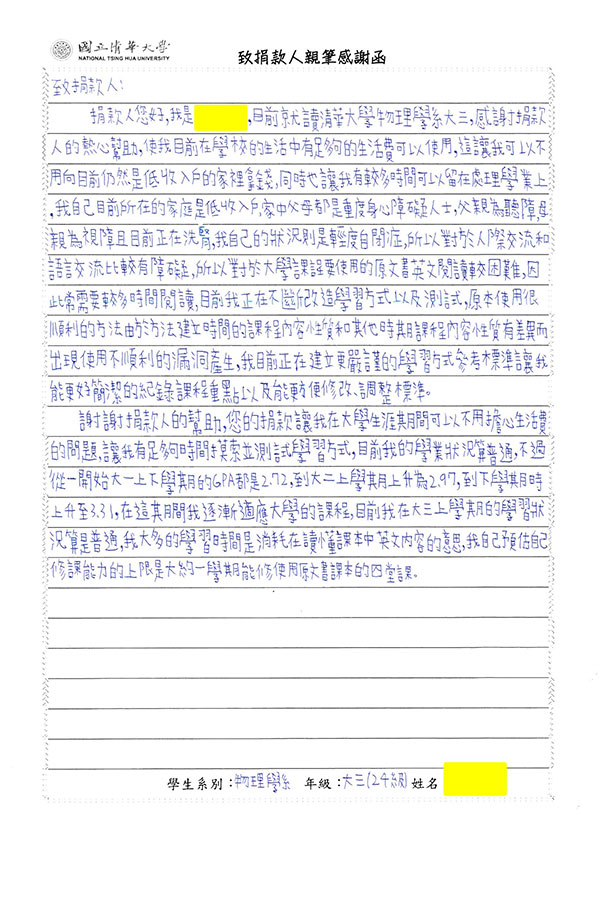 國立清華大學
NATIONAL TSING HUA UNIVERSITY
致捐款人親筆感謝函
致捐款人:
捐款人您好,我是,目前就讀清華大學物理學系大三,感謝捐款
人的熱心幫助,使我目前在學校的生活中有足夠的生活費可以使用,這讓我可以不
用向目前仍然是低收入戶的家裡拿錢,同時也讓我有較多時間可以留在處理學業上
,我自己目前所在的家庭是低收入戶,家中父母都是重度身心障礙人士,父親為聽障,母
親為視障且目前正在洗腎,我自己的狀況則是輕度自閉症,所以對於人際交流和
語言交流比較有障礙,所以對於大學課程要使用的原文書英文閱讀較困難,因
此常需要較多時間閱讀,目前我正在不斷改造學習方式以及測試,原本使用很
順利的方法由於方法建立時間的課程內容性質和其他時期課程內容性質有差異而
出現使用不順利的漏洞產生,我目前正在建立更嚴謹的學習方式參考標準讓我
能更好簡潔的紀錄課程重點以及能更方便修改、調整標準。
謝謝捐款人的幫助,您的捐款讓我在大學生涯期間可以不用擔心生活費
的問題,讓我有足夠時間摸索並測試學習方式,目前我的學業狀況算普通,不過
從一開始大一上下學期的GPA都是2.72,到大二上學期上升為2.97,到下學期時
上升至3.31,在這期間我逐漸適應大學的課程,目前我在大三上學期的學習狀
況算是普通,我大多的學習時間是消耗在讀懂課本中英文內容的意思,我自己預估自己
修課能力的上限是大約一學期能修使用原文書課本的四堂課。
學生系別:物理學系 年級:大三(24級) 姓名